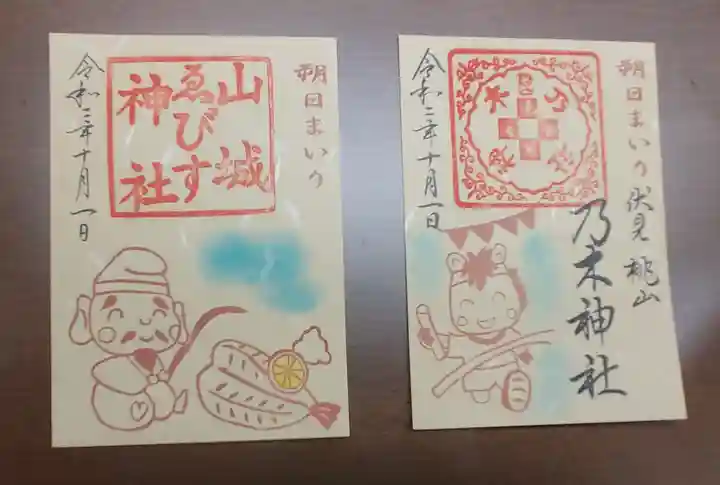 朔日まいり
山城
ゑびす
神社
令和二年十月一日
朔日まいり
伏見桃山
乃木神社
令和二年十月一日